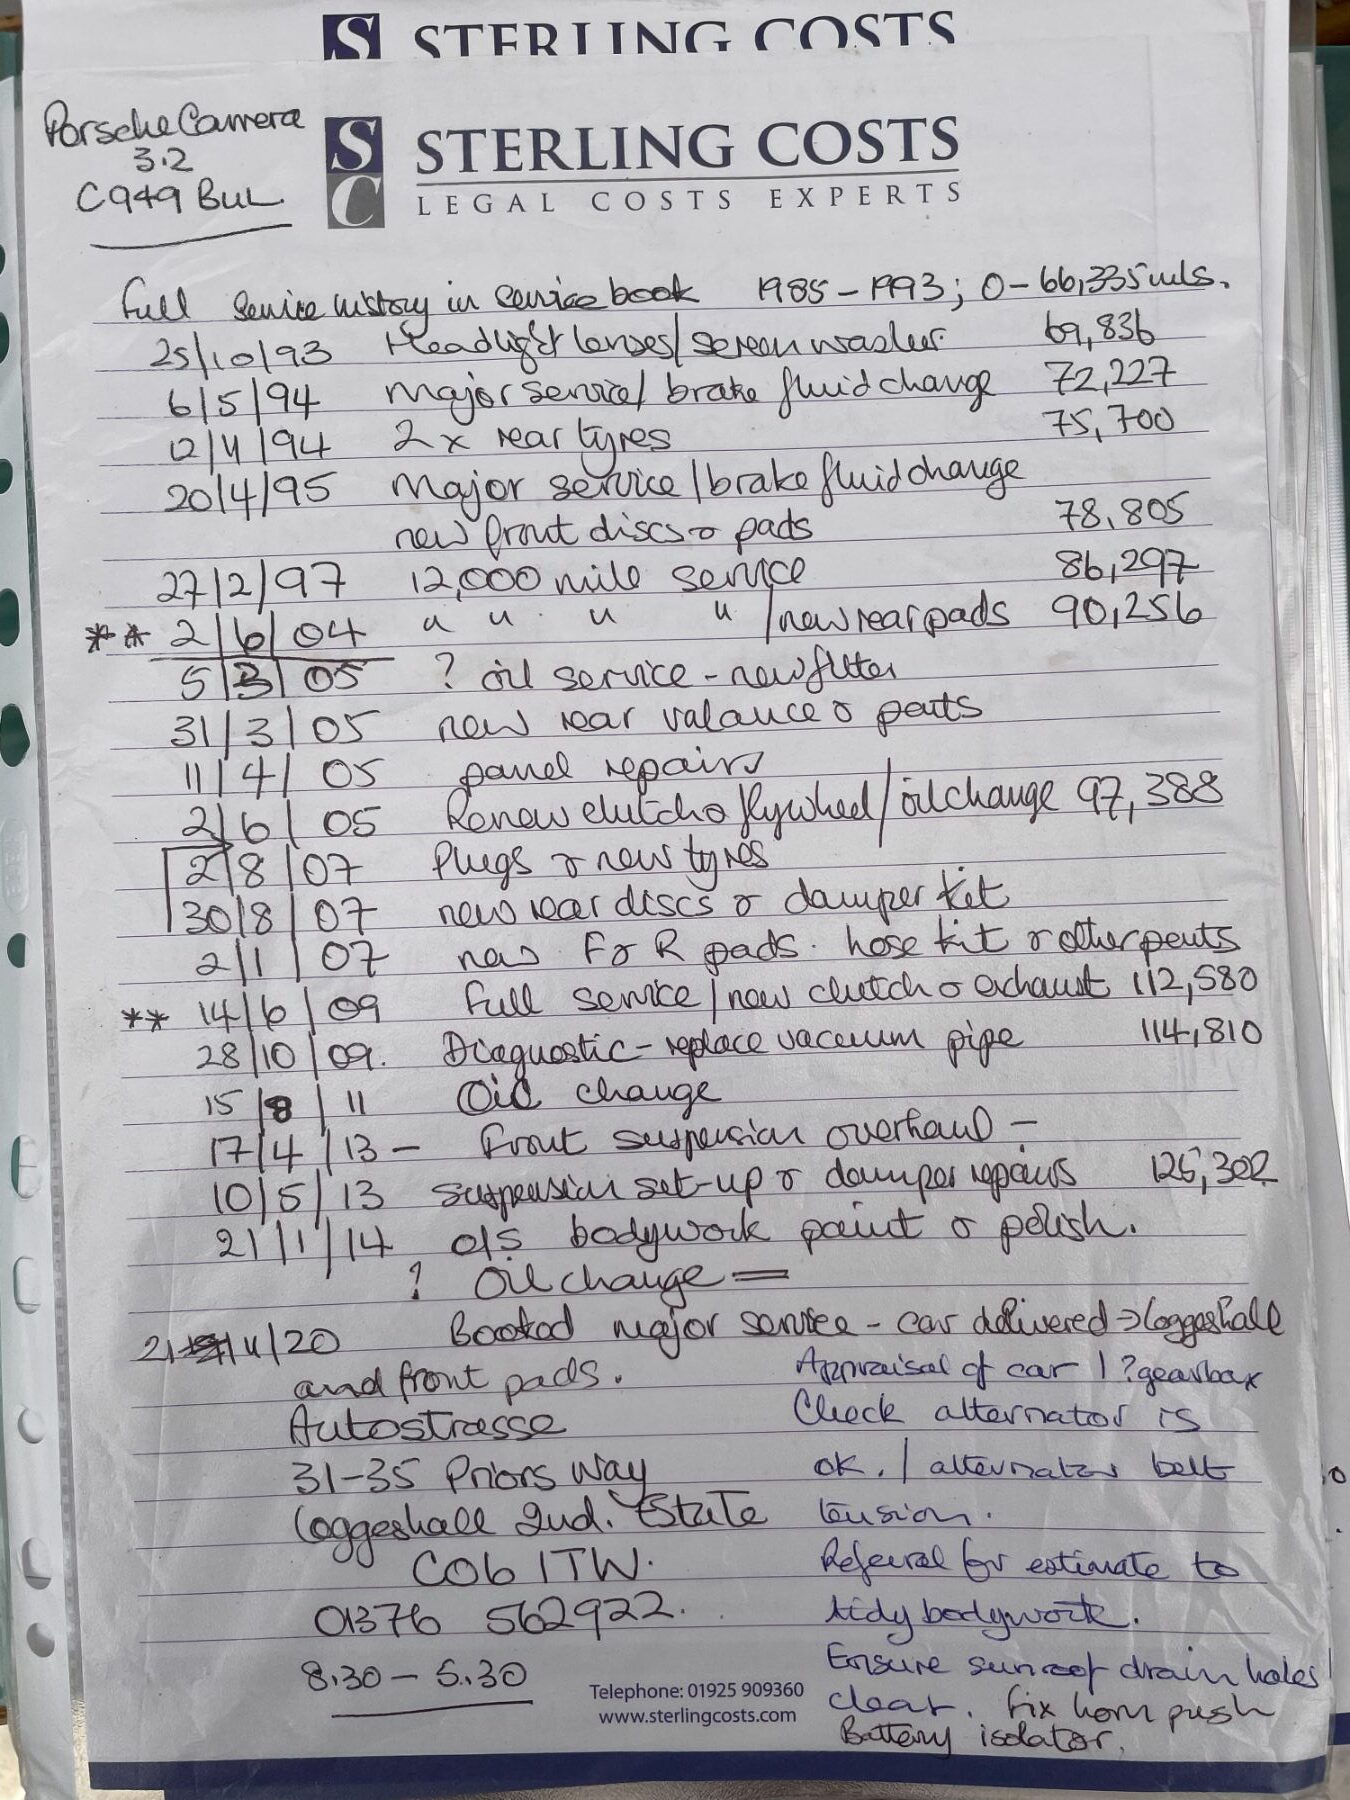 STERLING COSTS
Porsche Carrera
3.2
C949 BUL
SC
STERLING COSTS
LEGAL COSTS EXPERTS
Full service history in service book 1985-1993; 0-66,335 mls.
25/10/93 Headlight lenses/screen washer 69,836
6/5/94 Major service/ brake fluid change 72,227
12/11/94 2 x rear tyres 75,700
20/4/95 Major service/brake fluid change
new front discs & pads 78,805
27/2/97 12,000 mile service 86,297
** 2/6/04 " " " " /new rear pads 90,256
5/3/05 ? oil service - new filter
31/3/05 new rear valance & parts
11/4/05 panel repairs
2/6/05 Renew clutch & flywheel/oil change 97,388
2/8/07 Plugs & new tyres
30/8/07 new rear discs & damper kit
2/1/07 new F & R pads. hose kit & other parts
** 14/6/09 Full service/new clutch & exhaust 112,580
28/10/09. Diagnostic - replace vacuum pipe 114,810
15/8/11 Oil change
17/4/13 - Front suspension overhaul -
10/5/13 suspension set-up & damper repairs 125,302
21/1/14 o/s bodywork paint & polish.
? Oil change =
21/11/20 Booked major service - car delivered → Coggeshall
and front pads. Appraisal of car / ? gearbox
Autostrasse Check alternator is
31-35 Priors Way ok. / alternator belt
Coggeshall Ind. Estate tension.
CO6 1TW. Referral for estimate to
01376 562922. tidy bodywork.
8.30 - 5.30 Ensure sunroof drain holes
Telephone: 01925 909360 clear. Fix horn push
www.sterlingcosts.com Battery isolator.